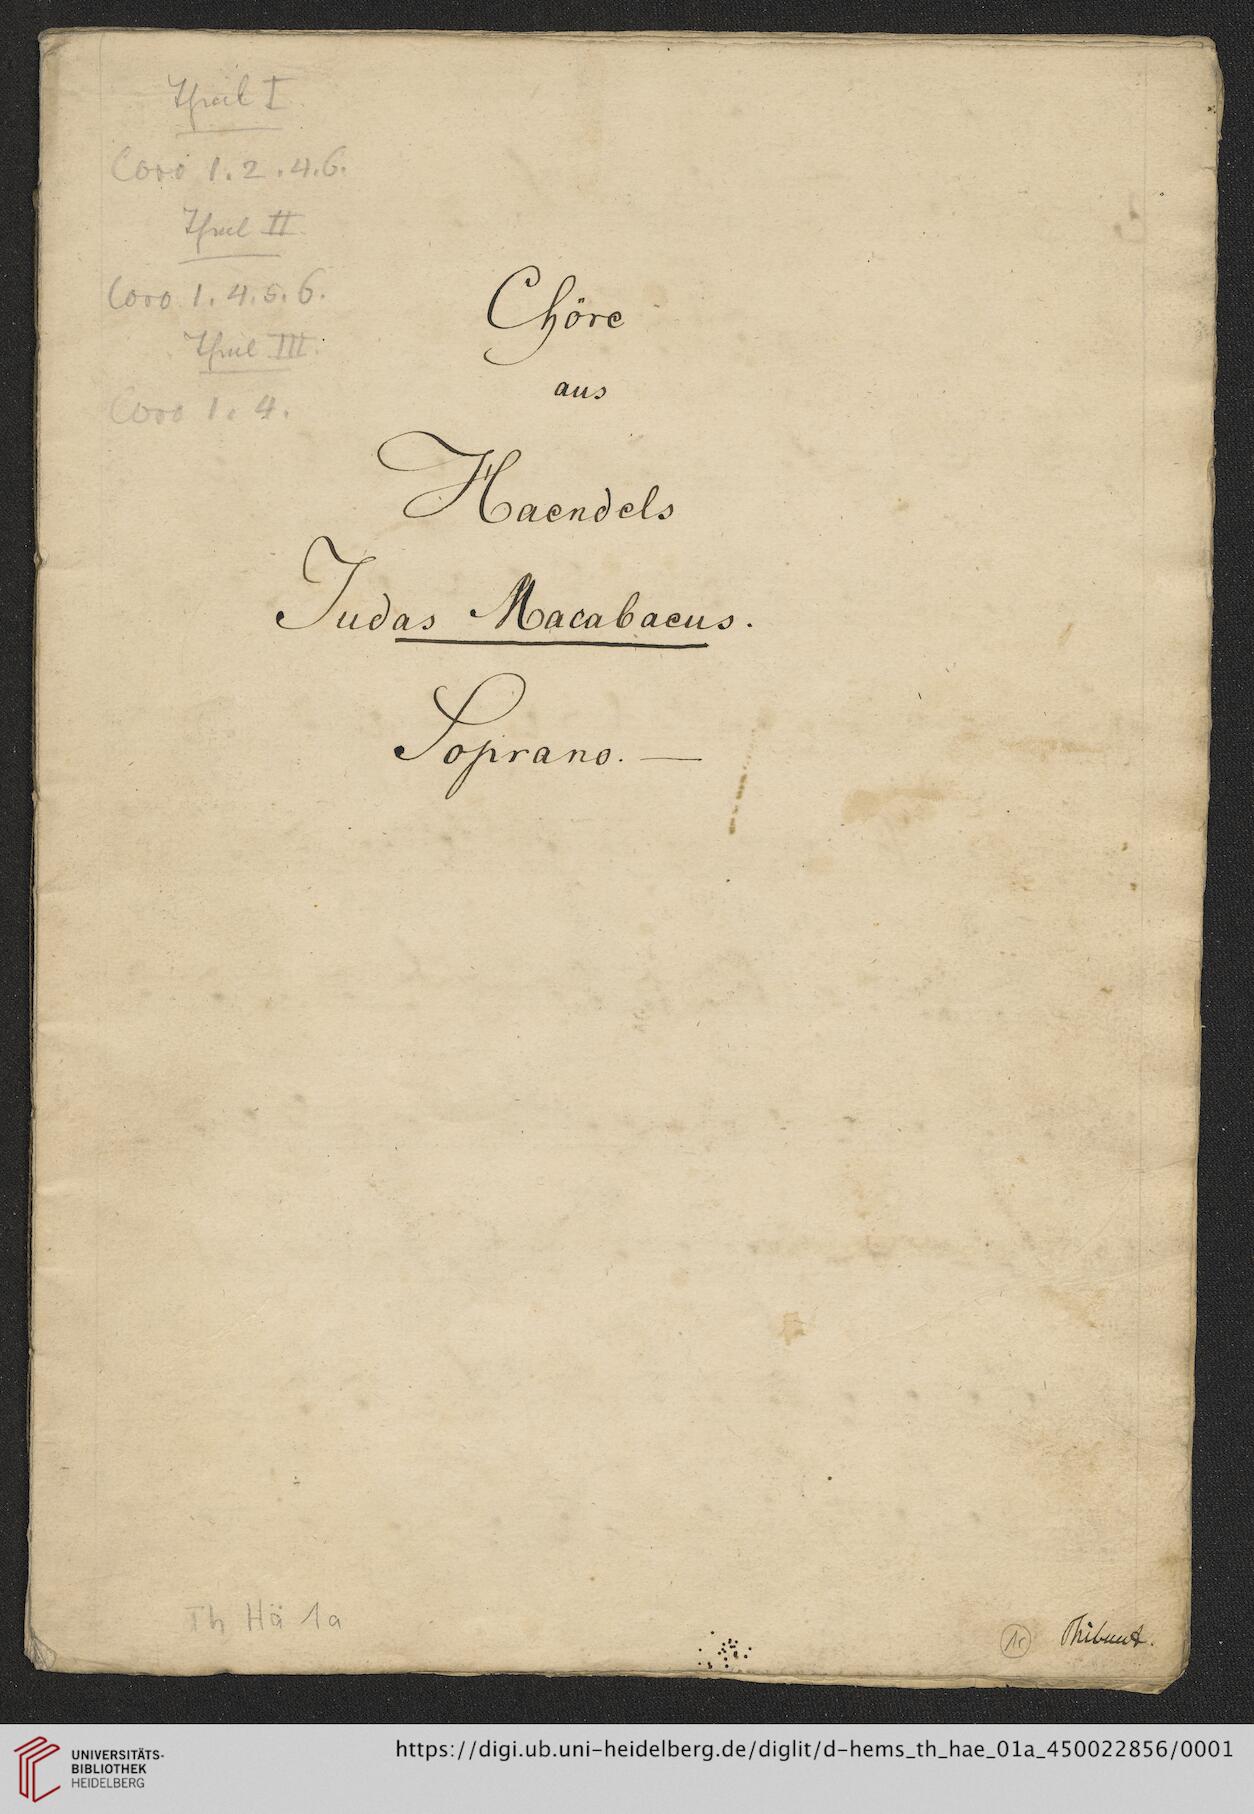 Theil I.
Coro 1. 2. 4. 6.
Theil II.
Coro 1. 4. 5. 6.
Theil III.
Coro 1. 4.
Chöre
aus
Haendels
Judas Macabaeus.
Soprano. —
Th Hä 1a
Thibaut.
UNIVERSITÄTS-
BIBLIOTHEK
HEIDELBERG
https://digi.ub.uni-heidelberg.de/diglit/d-hems_th_hae_01a_450022856/0001